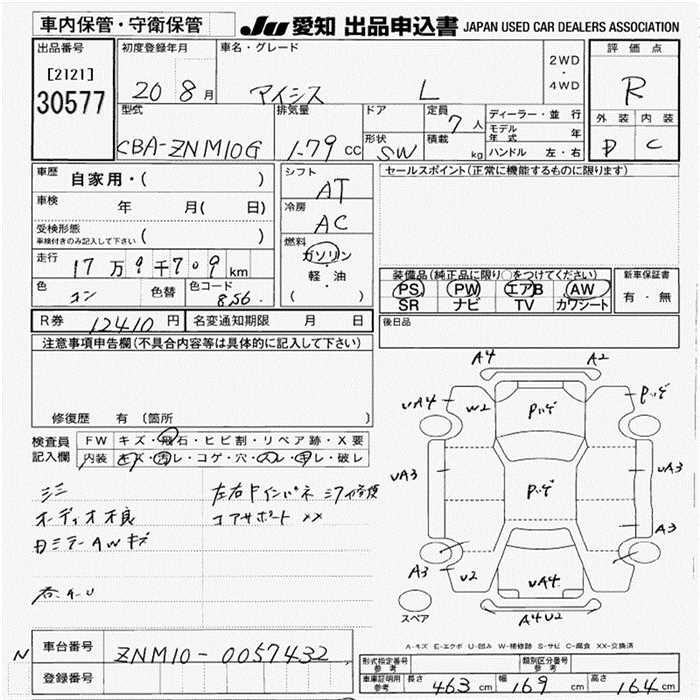 車内保管・守衛保管
JU 愛知 出品申込書 JAPAN USED CAR DEALERS ASSOCIATION
出品番号
[2121]
30577
初度登録年月
20 8月
車名・グレード
アイシス L
2WD
・
4WD
評価点
R
外装 内装
D C
型式
CBA-ZNM10G
排気量
1.79 cc
ドア
形状
SW
定員
7人
積載
kg
ディーラー・並行
モデル年式 年
ハンドル 左・右
車歴 自家用・( )
車検 年 月( 日)
受検形態
車検付きのみ記入して下さい ( )
走行 17万9千709km
色 コン 色替 色コード 8S6
R券 12410円 名変通知期限 月 日
シフト
AT
冷房
AC
燃料
ガソリン
・
軽・油
( )
セールスポイント(正常に機能するものに限ります)
装備品(純正品に限り○をつけてください)
PS PW エアB AW
SR ナビ TV カワシート
新車保証書
有・無
後日品
注意事項申告欄(不具合内容等は具体的に記入して下さい)
修復歴 有(箇所 )
検査員
記入欄
FW キズ・飛石・ヒビ割・リペア跡・X要
内装 キズ・汚レ・コゲ・穴・スレ・凹レ・破レ
オーディオ不良
コアサポート XX
A4 A2
UA4 W2 Pハゲ Pハゲ
UA3 Pハゲ UA3
A3
A3 U2 UA4
A4U2
スペア
A-キズ E-エクボ U-凹み W-補修跡 S-サビ C-腐食 XX-交換済
N 車台番号 ZNM10-0057432
登録番号
形式指定番号 参考
類別区分番号 参考
車庫証明用 参考 長さ 463cm 幅 169cm 高さ 164cm